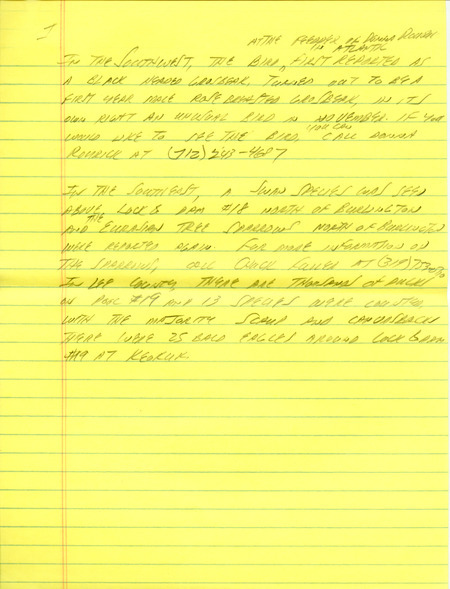 1
AT THE FEEDER OF DONNA
IN ATLANTIC
IN THE SOUTHWEST, THE BIRD, FIRST REPORTED AS
A BLACK HEADED GROSBEAK, TURNED OUT TO BE A
FIRST YEAR MALE ROSE BREASTED GROSBEAK, IN ITS
OWN RIGHT AN UNUSUAL BIRD IN NOVEMBER. IF YOU
WOULD LIKE TO SEE THE BIRD, YOU CAN CALL DONNA
AT (712) 243-4687
IN THE SOUTHEAST, A SWAN SPECIES WAS SEEN
ABOVE LOCK & DAM #18 NORTH OF BURLINGTON
AND THE EURASIAN TREE SPARROWS NORTH OF BURLINGTON
WERE REPORTED AGAIN. FOR MORE INFORMATION ON
THE SPARROWS, CALL CHUCK FULLER AT (319)
IN LEE COUNTY, THERE ARE THOUSANDS OF DUCKS
ON POOL #19 AND 13 SPECIES WERE COUNTED
WITH THE MAJORITY SCAUP AND CANVASBACK
THERE WERE 25 BALD EAGLES AROUND LOCK & DAM
#19 AT KEOKUK.